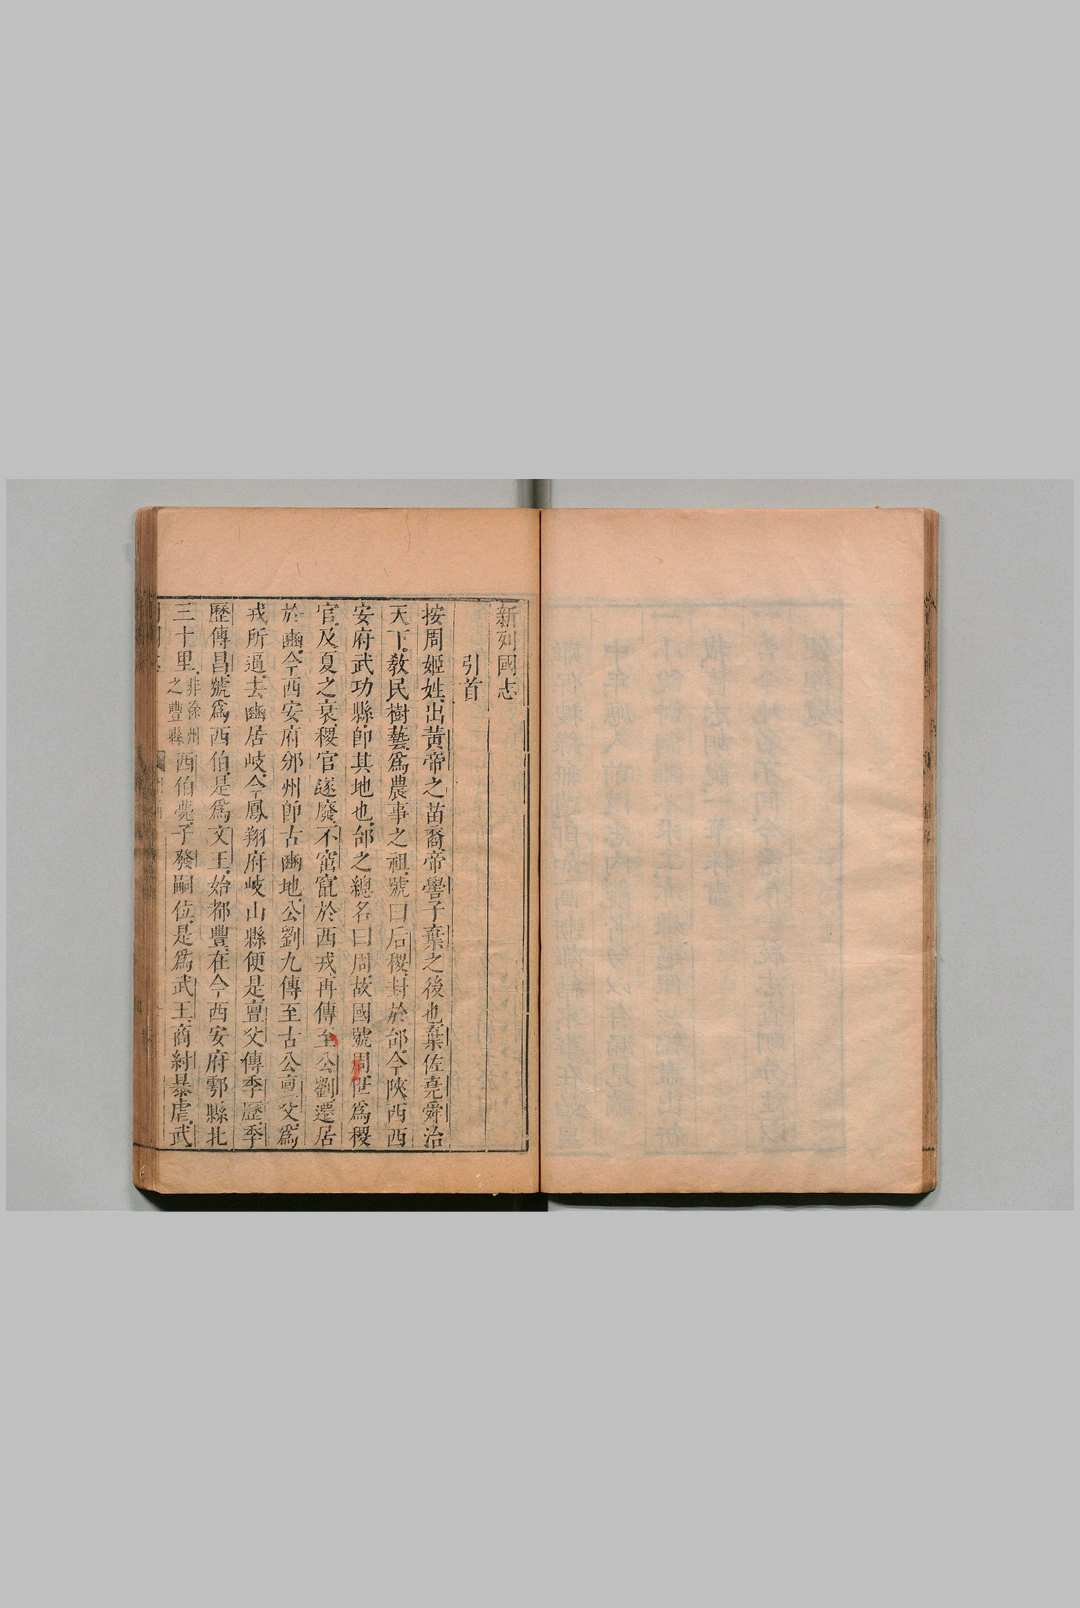 新列國志
引首
按周姬姓出黃帝之苗裔帝嚳子棄之後也棄佐堯舜治
天下教民樹藝爲農事之祖號曰后稷封於邰今陝西西
安府武功縣卽其地也邰之總名曰周故國號周世爲稷
官及夏之衰稷官遂廢不窋竄於西戎再傳至公劉遷居
於豳今西安府邠州卽古豳地公劉九傳至古公亶父爲
戎所逼去豳居岐今鳳翔府岐山縣便是亶父傳季歷季
歷傳昌號爲西伯是爲文王始都豐在今西安府鄠縣北
三十里非徐州之豐縣西伯薨子發嗣位是爲武王商紂暴虐武